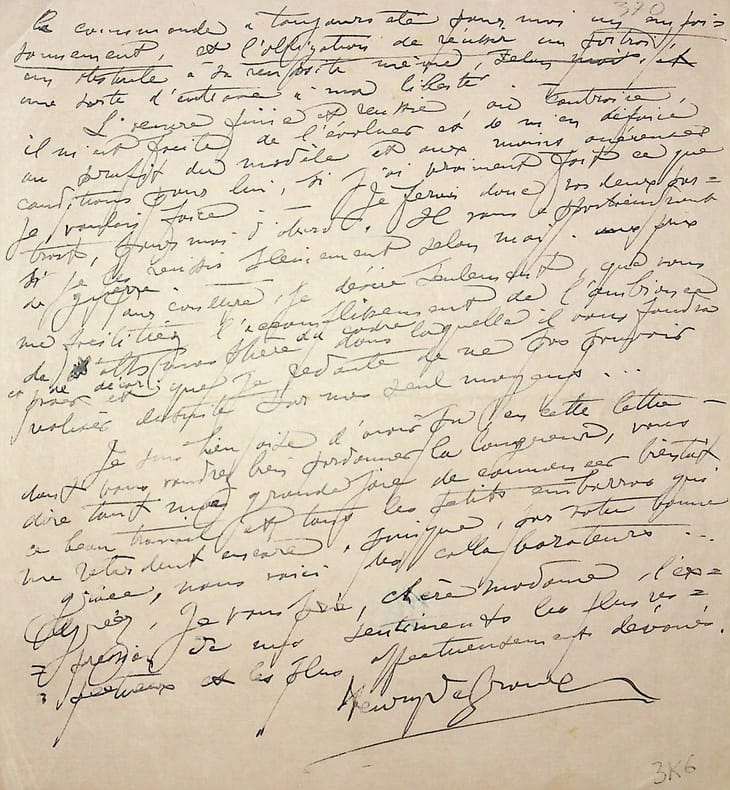 370
la commande a toujours été pour moi un empoi=
sonnement, et l'obligation de réussir un portrait
un obstacle à sa réussite même, selon moi, et
une sorte d'entrave à ma liberté
L'oeuvre finie et réussie, au contraire,
il m'est facile de l'évoluer et de m'en défaire
au profit du modèle et aux moins onéreuses
conditions pour lui, si j'ai vraiment fait ce que
je voulais faire. Je ferais donc vos deux por=
traits, pour moi d'abord. Ils vous appartiendront
si je les réussis pleinement selon moi. aux prix
de guerre.
Par contre, je désire seulement, que vous
me facilitiez l'accomplissement de l'ambiance
de l'atmosphère du cadre dans laquelle il vous faudra
et ce décor que je redoute de ne pas pouvoir
réaliser ensuite par mes seul moyens...
Je suis bien aise d'avoir pu, en cette lettre
dont vous voudrez bien pardonner la longueur, vous
dire tout ma grande joie de commencer bientôt
ce beau travail et tous les petits embarras qui
me retardent encore, puisque, par votre bonne
grâce, nous voici collaborateurs...
Agréez, je vous prie, chère madame, l'ex=
pression de mes sentiments les plus res=
pectueux et les plus affectueusement dévoués.
Henry de Groux
3K6